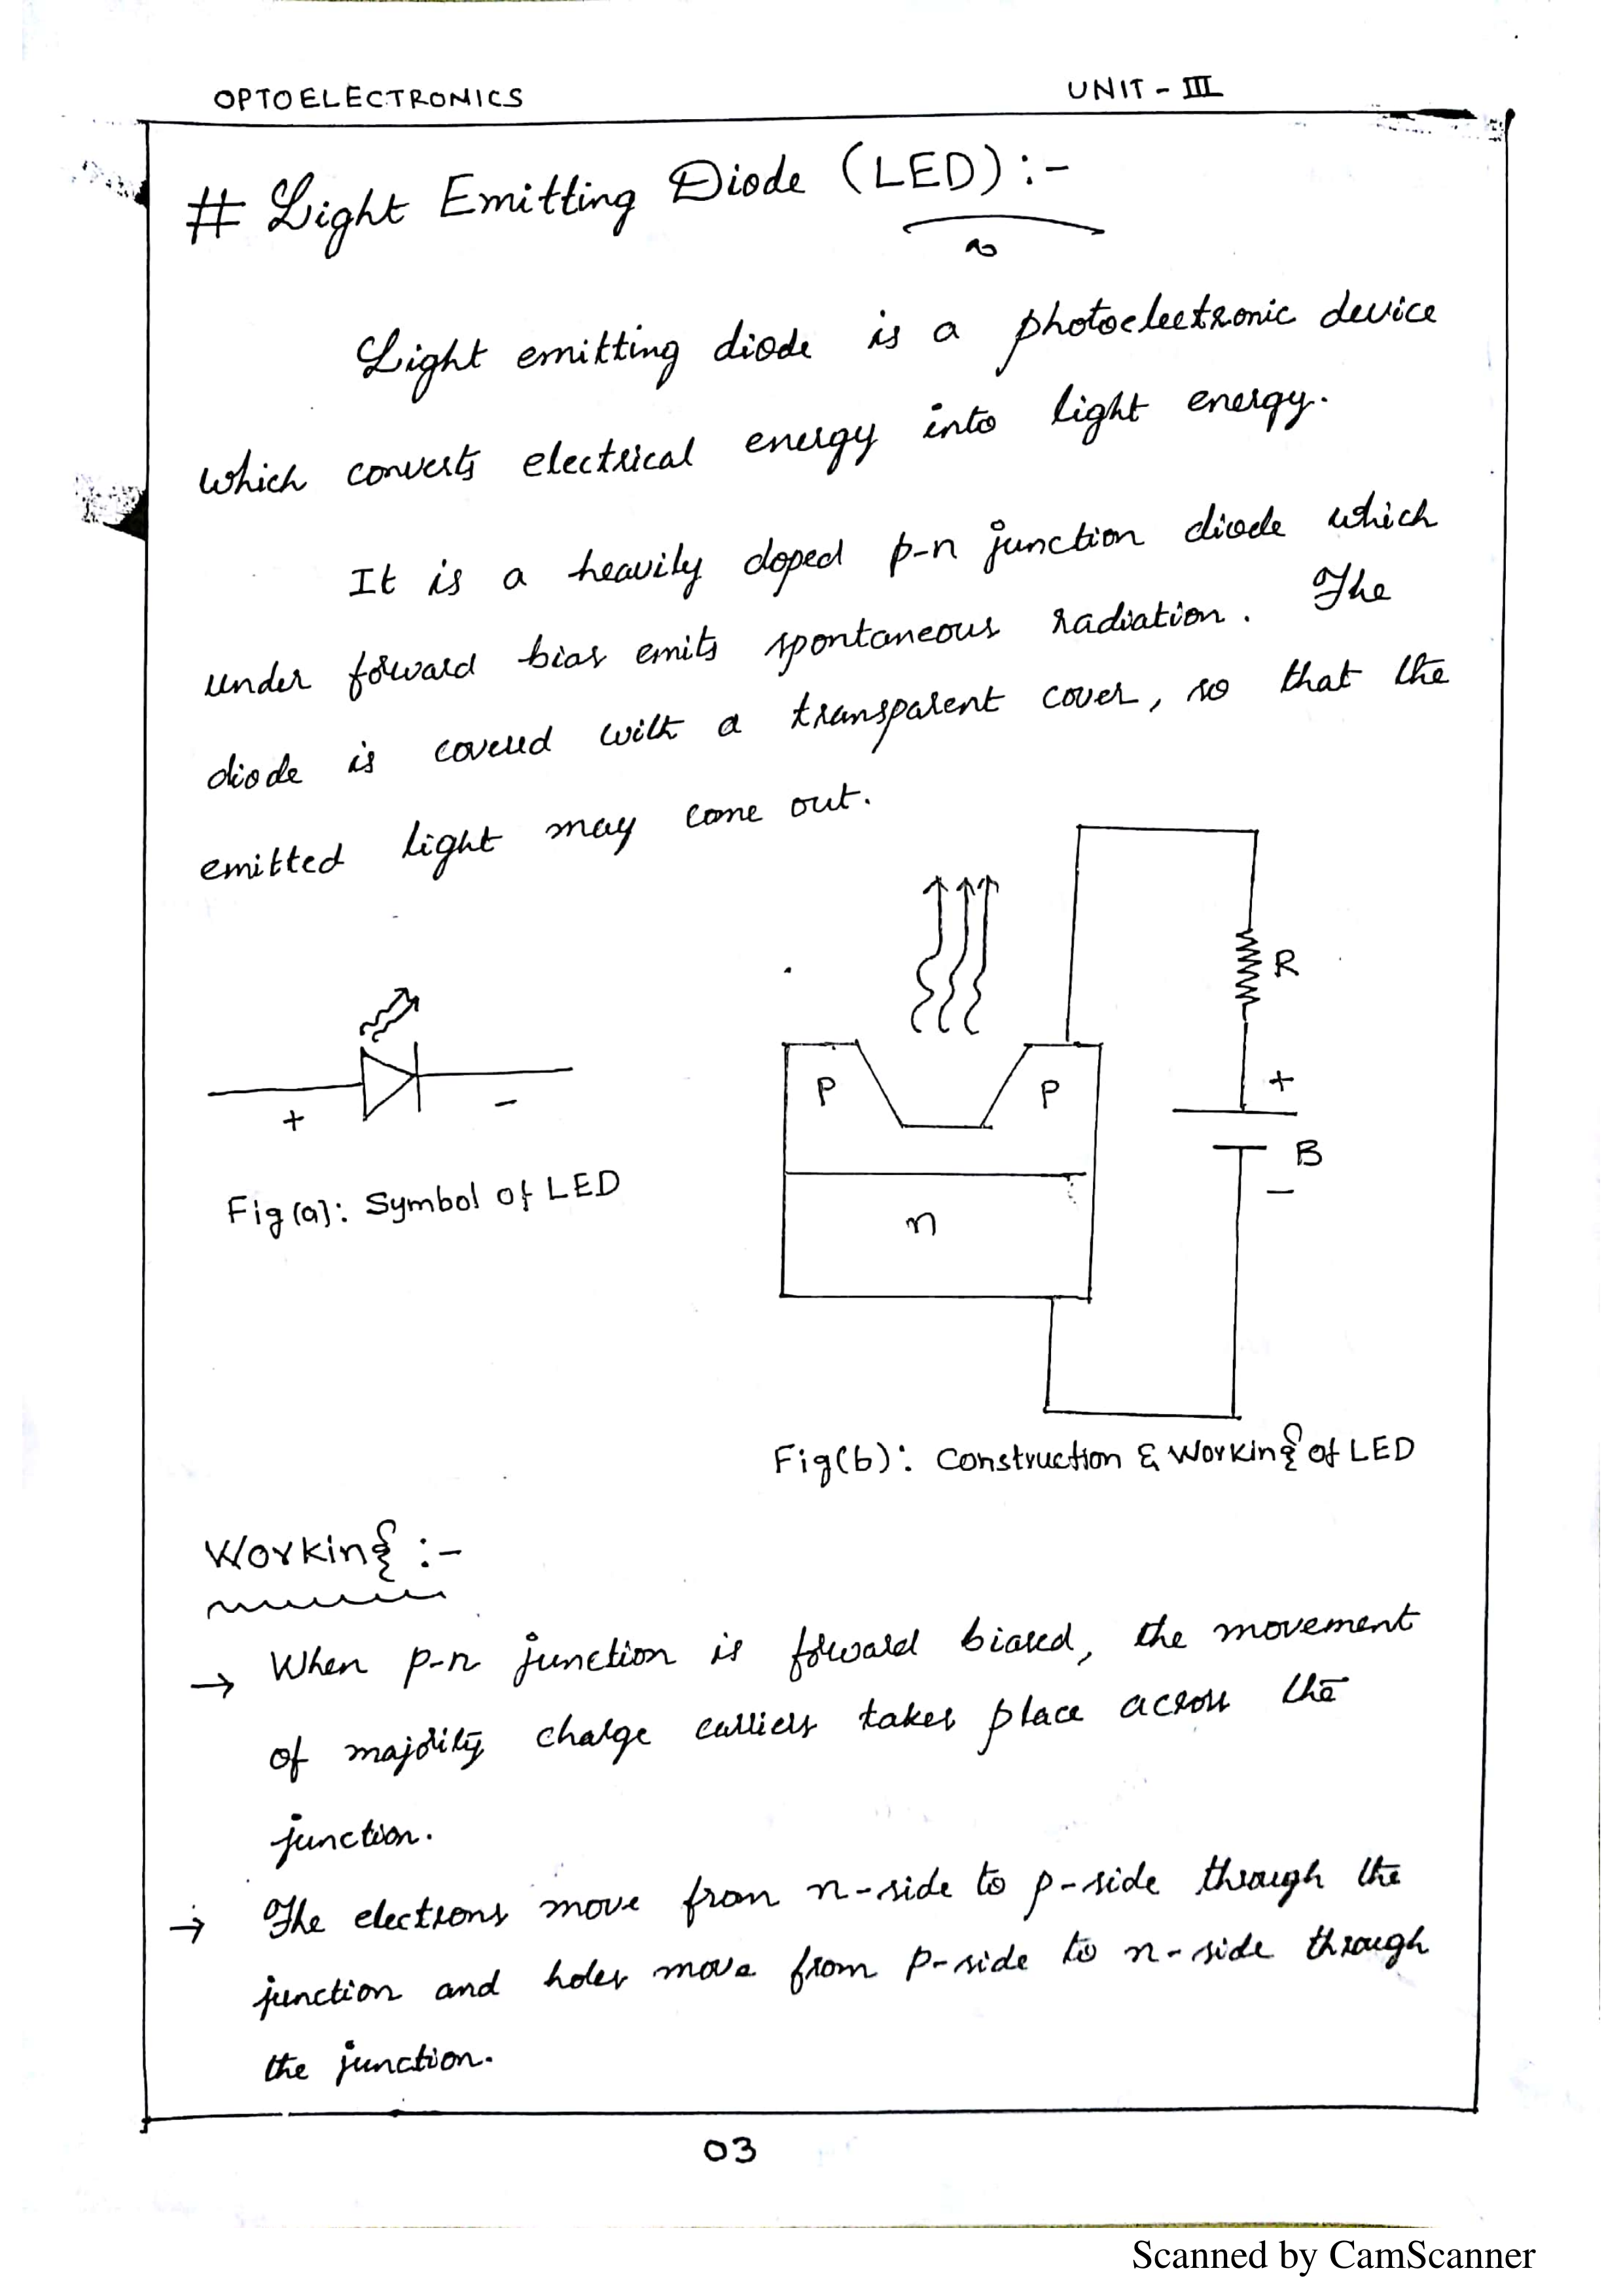 OPTOELECTRONICS
UNIT - III
# Light Emitting Diode (LED) :-
Light emitting diode is a photoelectronic device
which converts electrical energy into light energy.
It is a heavily doped p-n junction diode which
under forward bias emits spontaneous radiation. The
diode is covered with a transparent cover, so that the
emitted light may come out.
R
P
P
+
+
-
B
-
n
Fig (a): Symbol of LED
Fig(b): Construction & Working of LED
Working :-
→ When p-n junction is forward biased, the movement
of majority charge carriers takes place across the
junction.
→ The electrons move from n-side to p-side through the
junction and holes move from p-side to n-side through
the junction.
03
Scanned by CamScanner